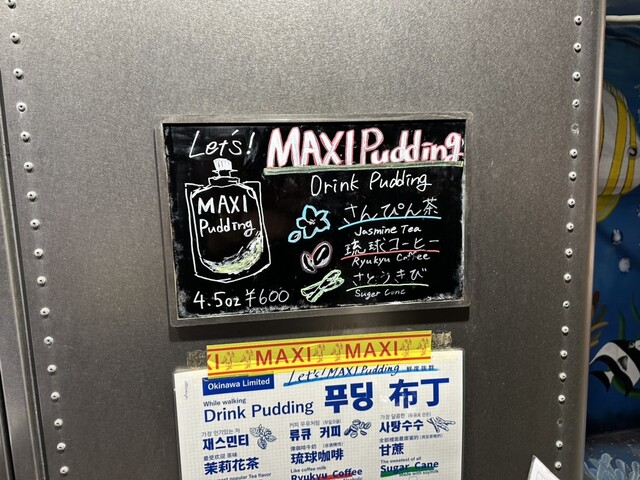 Let's! MAXI Pudding
Drink Pudding
MAXI
Pudding
さんぴん茶
Jasmine Tea
琉球コーヒー
Ryukyu Coffee
さとうきび
Suger Cane
4.5oz ¥600
XI MAXI MAXI
Let's! MAXI Pudding
Okinawa Limited
While walking
Drink Pudding 푸딩 布丁
재스민티
茉莉花茶
류큐 커피
琉球咖啡
Like coffee milk
Ryukyu Coffee
사탕수수
甘蔗
The sweetest of all
Sugar Cane
most popular Tea flavor